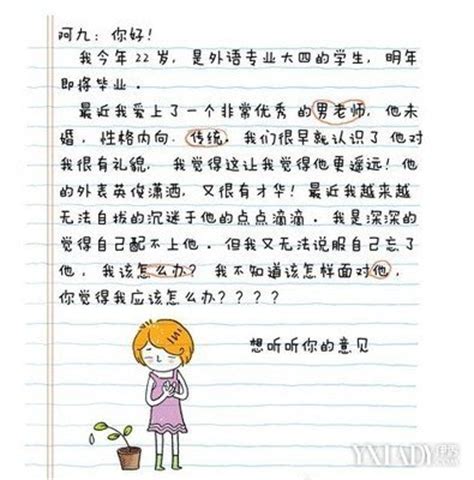 阿九：你好！
我今年22岁，是外语专业大四的学生，明年
即将毕业．
最近我爱上了一个非常优秀的男老师，他未
婚．性格内向．传统．我们很早就认识了他对
我很有礼貌，我觉得这让我觉得他更遥远！他
的外表英俊潇洒，又很有才华！最近我越来越
无法自拔的沉迷于他的点点滴滴．我是深深的
觉得自己配不上他．但我又无法说服自己忘了
他，我该怎么办？我不知道该怎样面对他，
你觉得我应该怎么办？？？？
想听听你的意见
YXLADY